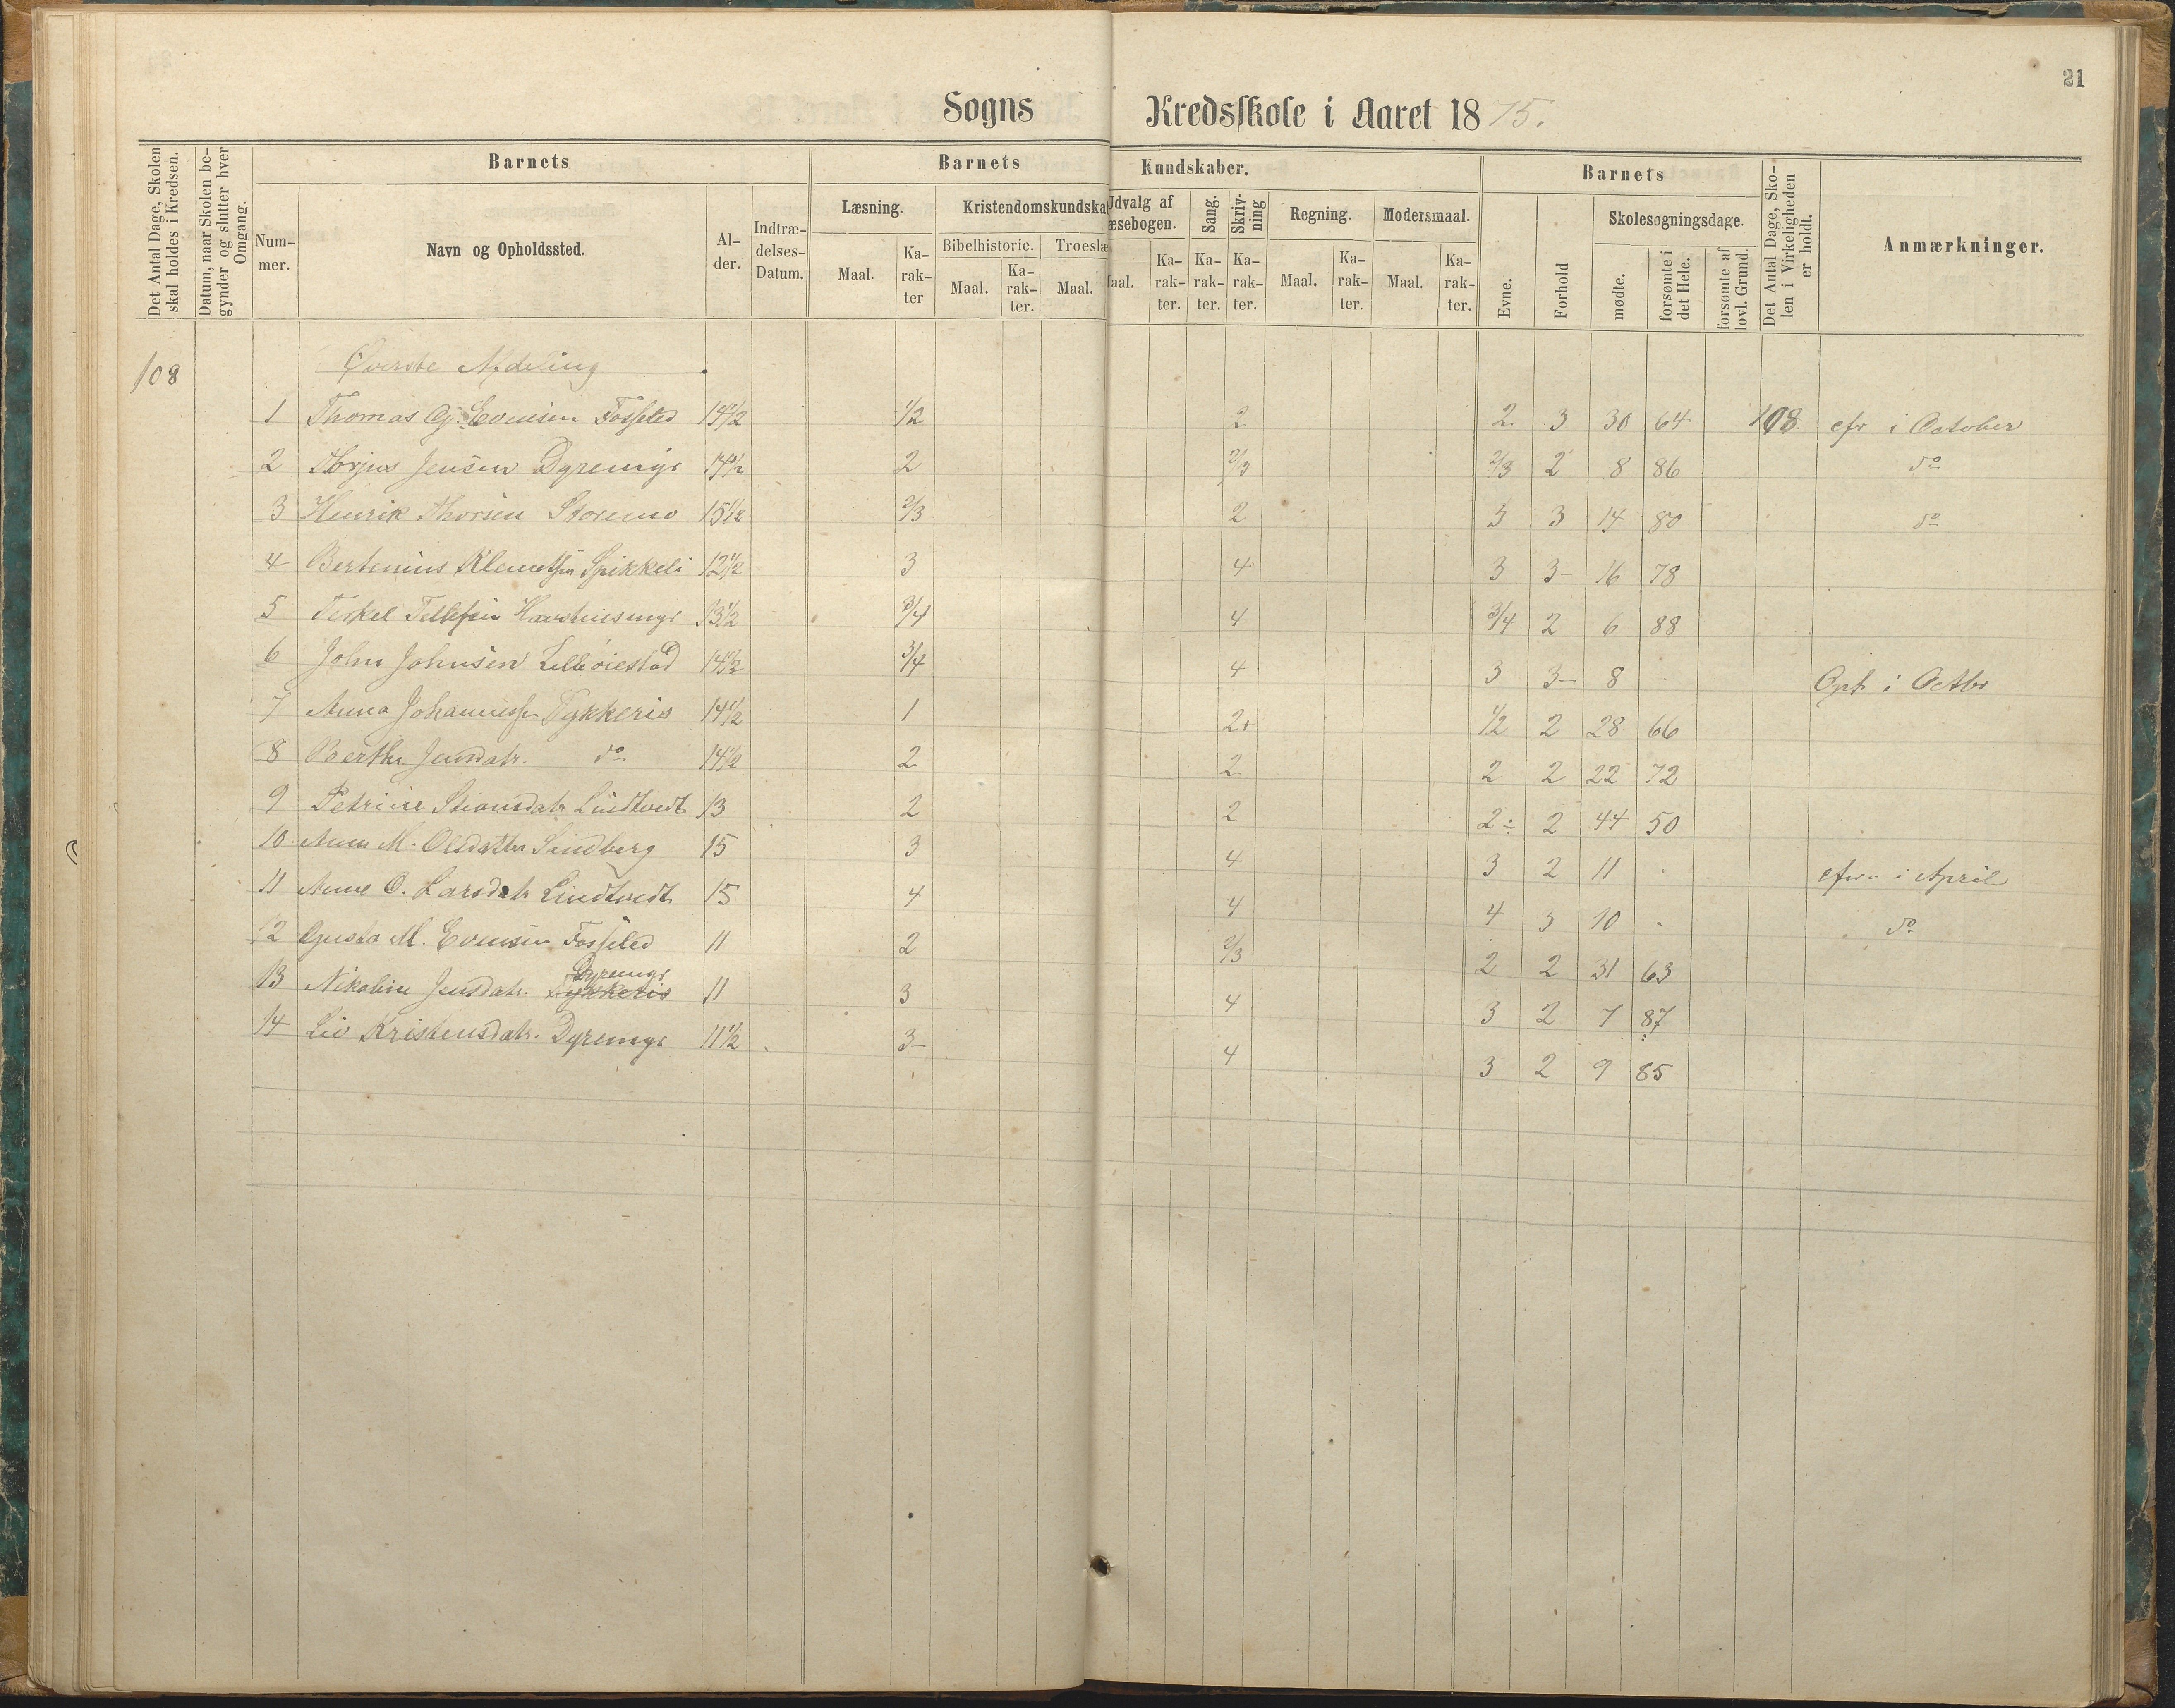 21
Sogns Kredsskole i Aaret 1875.
Det Antal Dage, Skolen skal holdes i Kredsen.
Datum, naar Skolen begynder og slutter hver Omgang.
Barnets Barnets Kundskaber. Barnets
Det Antal Dage, Skolen i Virkeligheden er holdt.
Anmærkninger.
Nummer. Navn og Opholdssted. Alder. Indtrædelses-Datum.
Læsning. Kristendomskundska Udvalg af æsebogen. Sang. Skrivning Regning. Modersmaal. Evne. Forhold Skolesøgningsdage.
Bibelhistorie. Troeslæ
Maal. Karakter Maal. Karakter. Maal. Maal. Karakter. Karakter. Karakter. Maal. Karakter. Maal. Karakter. mødte. forsømte i det Hele. forsømte af lovl. Grund.
108 Øverste Afdeling
1 Thomas Gj. Evensen Fosseled 14 1/2 1/2 2 2. 3 30 64 108. cfr i October
2 Torjus Jensen Dyremyr 14 1/2 2 2/3 2/3 2 8 86 do
3 Henrik Thorsen Storemo 15 1/2 2/3 2 3 3 14 80 do
4 Bertenius Klemetsen Spikkeli 12 1/2 3 4 3 3- 16 78
5 Terkel Tellefsen 13 1/2 3/4 4 3/4 2 6 88
6 John Johnsen Lilleøiestad 14 1/2 3/4 4 3 3- 8 Opt. i Octbr
7 Anna Johannessen Tykkeris 14 1/2 1 2+ 1/2 2 28 66
8 Berthe Jensdatr. do 14 1/2 2 2 2 2 22 72
9 Petrine Stiansdatr Lindtvedt 13 2 2 2÷ 2 44 50
10 Anne M. Olsdatter Lindberg 15 3 4 3 2 11 i April
11 Anne O. Larsdatr Lindtvedt 15 4 4 4 3 10 - do
12 Gusta M. Evensen Fosseled 11 2 2/3 2 2 31 63
Dyremyr
13 Nikoline Jensdatr. Tykkeris 11 3 4 3 2 7 87
14 Liv Kristensdatr. Dyremyr 11 1/2 3- 4 3 2 9 85